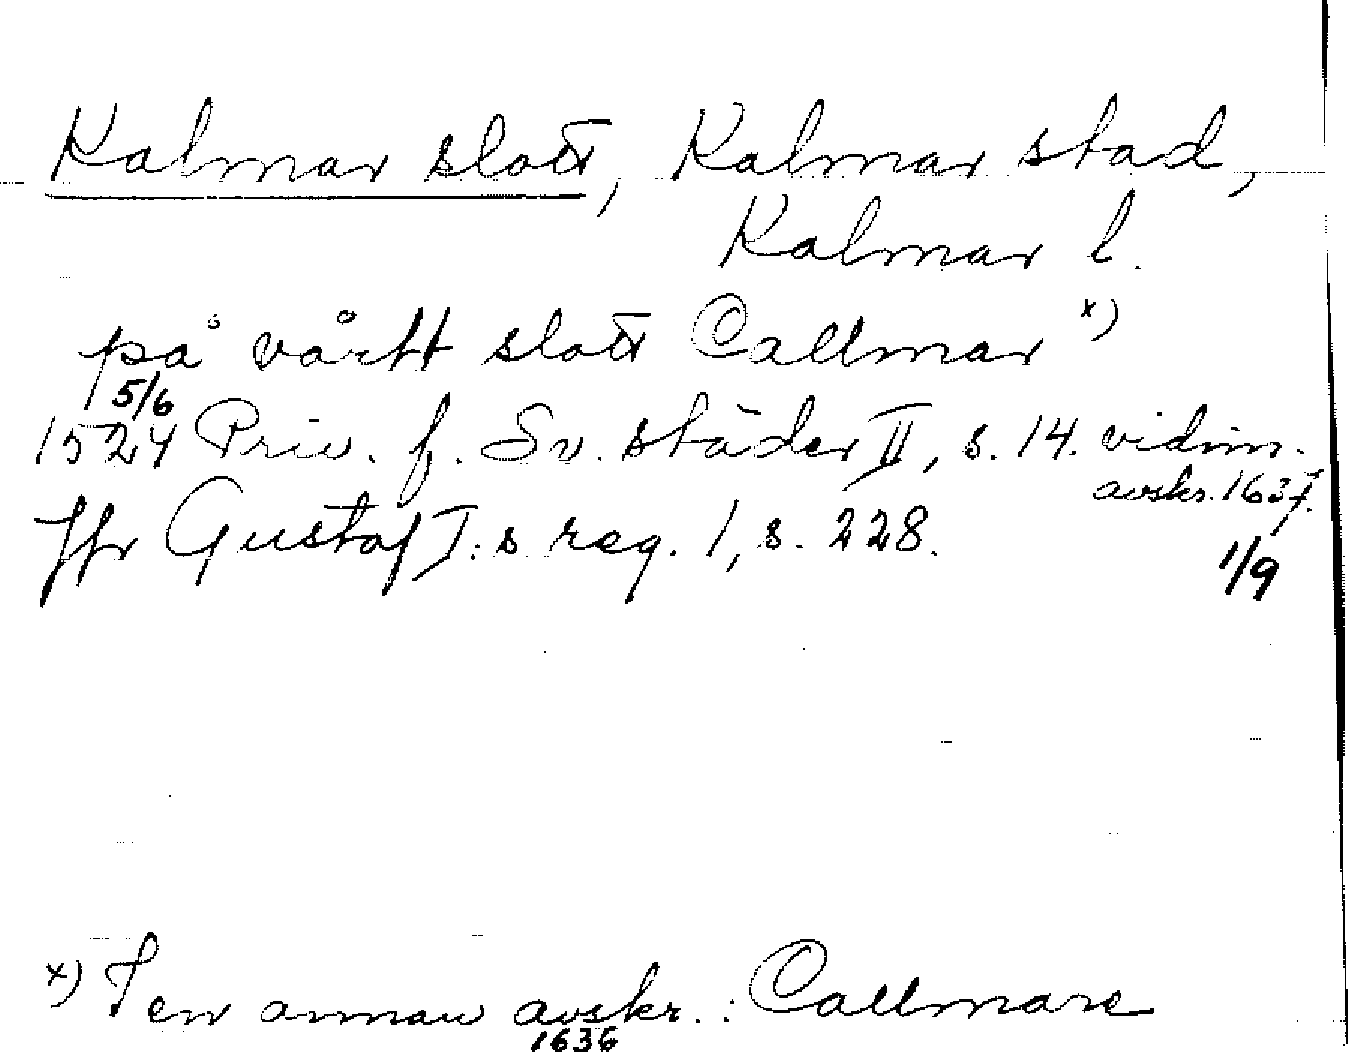 Kalmar slott, Kalmar stad,
Kalmar l.
på vårtt slott Callmar x)
5/6
1524 Priv. f. Sv. städer II, s. 14. vidim.
avskr. 1637.
Jfr Gustaf I:s reg. 1, s. 228.
1/9
x) I en annan avskr.: Callmare
1636